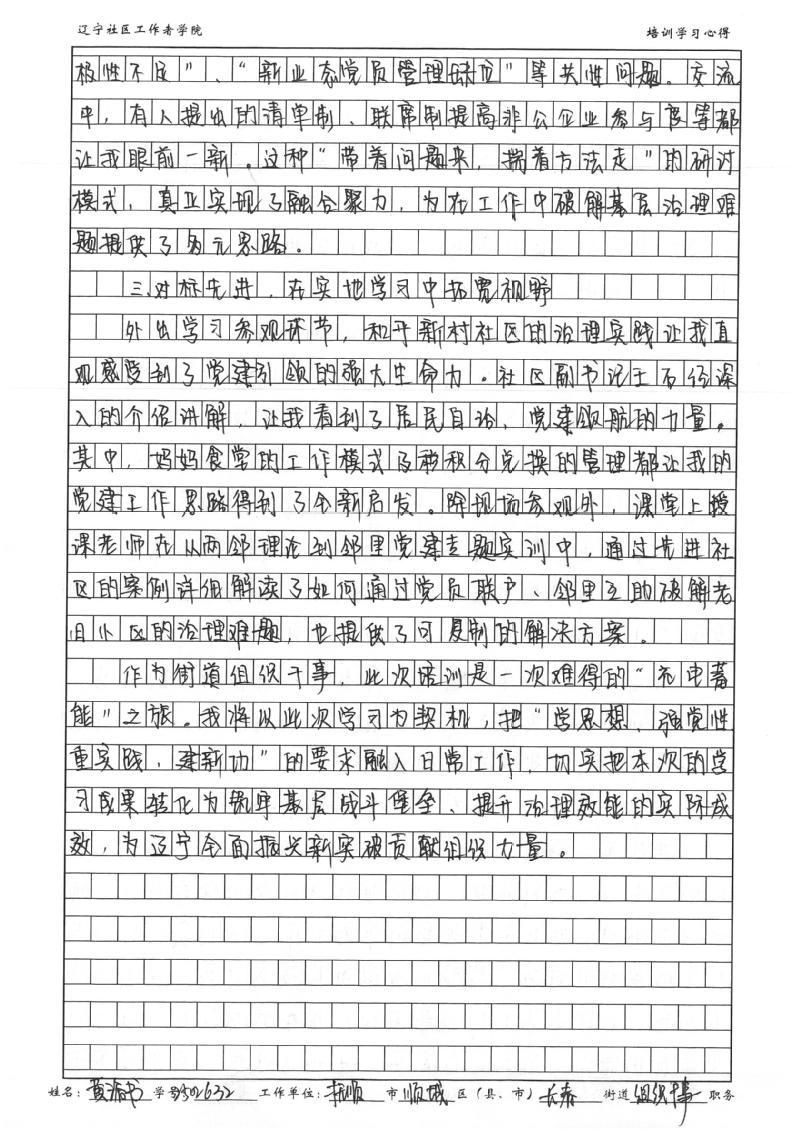 辽宁社区工作者学院 培训学习心得
极性不足”、“新业态党员管理缺位”等共性问题。交流
中，有人提出的清单制、联席制提高非公企业参与度等都
让我眼前一新。这种“带着问题来，揣着方法走”的研讨
模式，真正实现了融合聚力，为在工作中破解基层治理难
题提供了多元思路。
三、对标先进，在实地学习中拓宽视野
外出学习参观环节，和平新村社区的治理实践让我直
观感受到了党建引领的强大生命力。社区副书记王石径深
入的介绍讲解，让我看到了居民自治、党建领航的力量。
其中，妈妈食堂的工作模式及积分兑换的管理都让我的
党建工作思路得到了全新启发。除现场参观外，课堂上授
课老师在从两邻理论到邻里党建专题实训中，通过先进社
区的案例详细解读了如何通过党员联户、邻里互助破解老
旧小区的治理难题，也提供了可复制的解决方案。
作为街道组织干事，此次培训是一次难得的“充电蓄
能”之旅。我将以此次学习为契机，把“学思想、强党性
重实践、建新功”的要求融入日常工作，切实把本次的学
习成果转化为筑牢基层战斗堡垒、提升治理效能的实际成
效，为辽宁全面振兴新突破贡献组织力量。
姓名： 学号 工作单位：抚顺 市 顺城 区（县、市）长春 街道 组织干事 职务